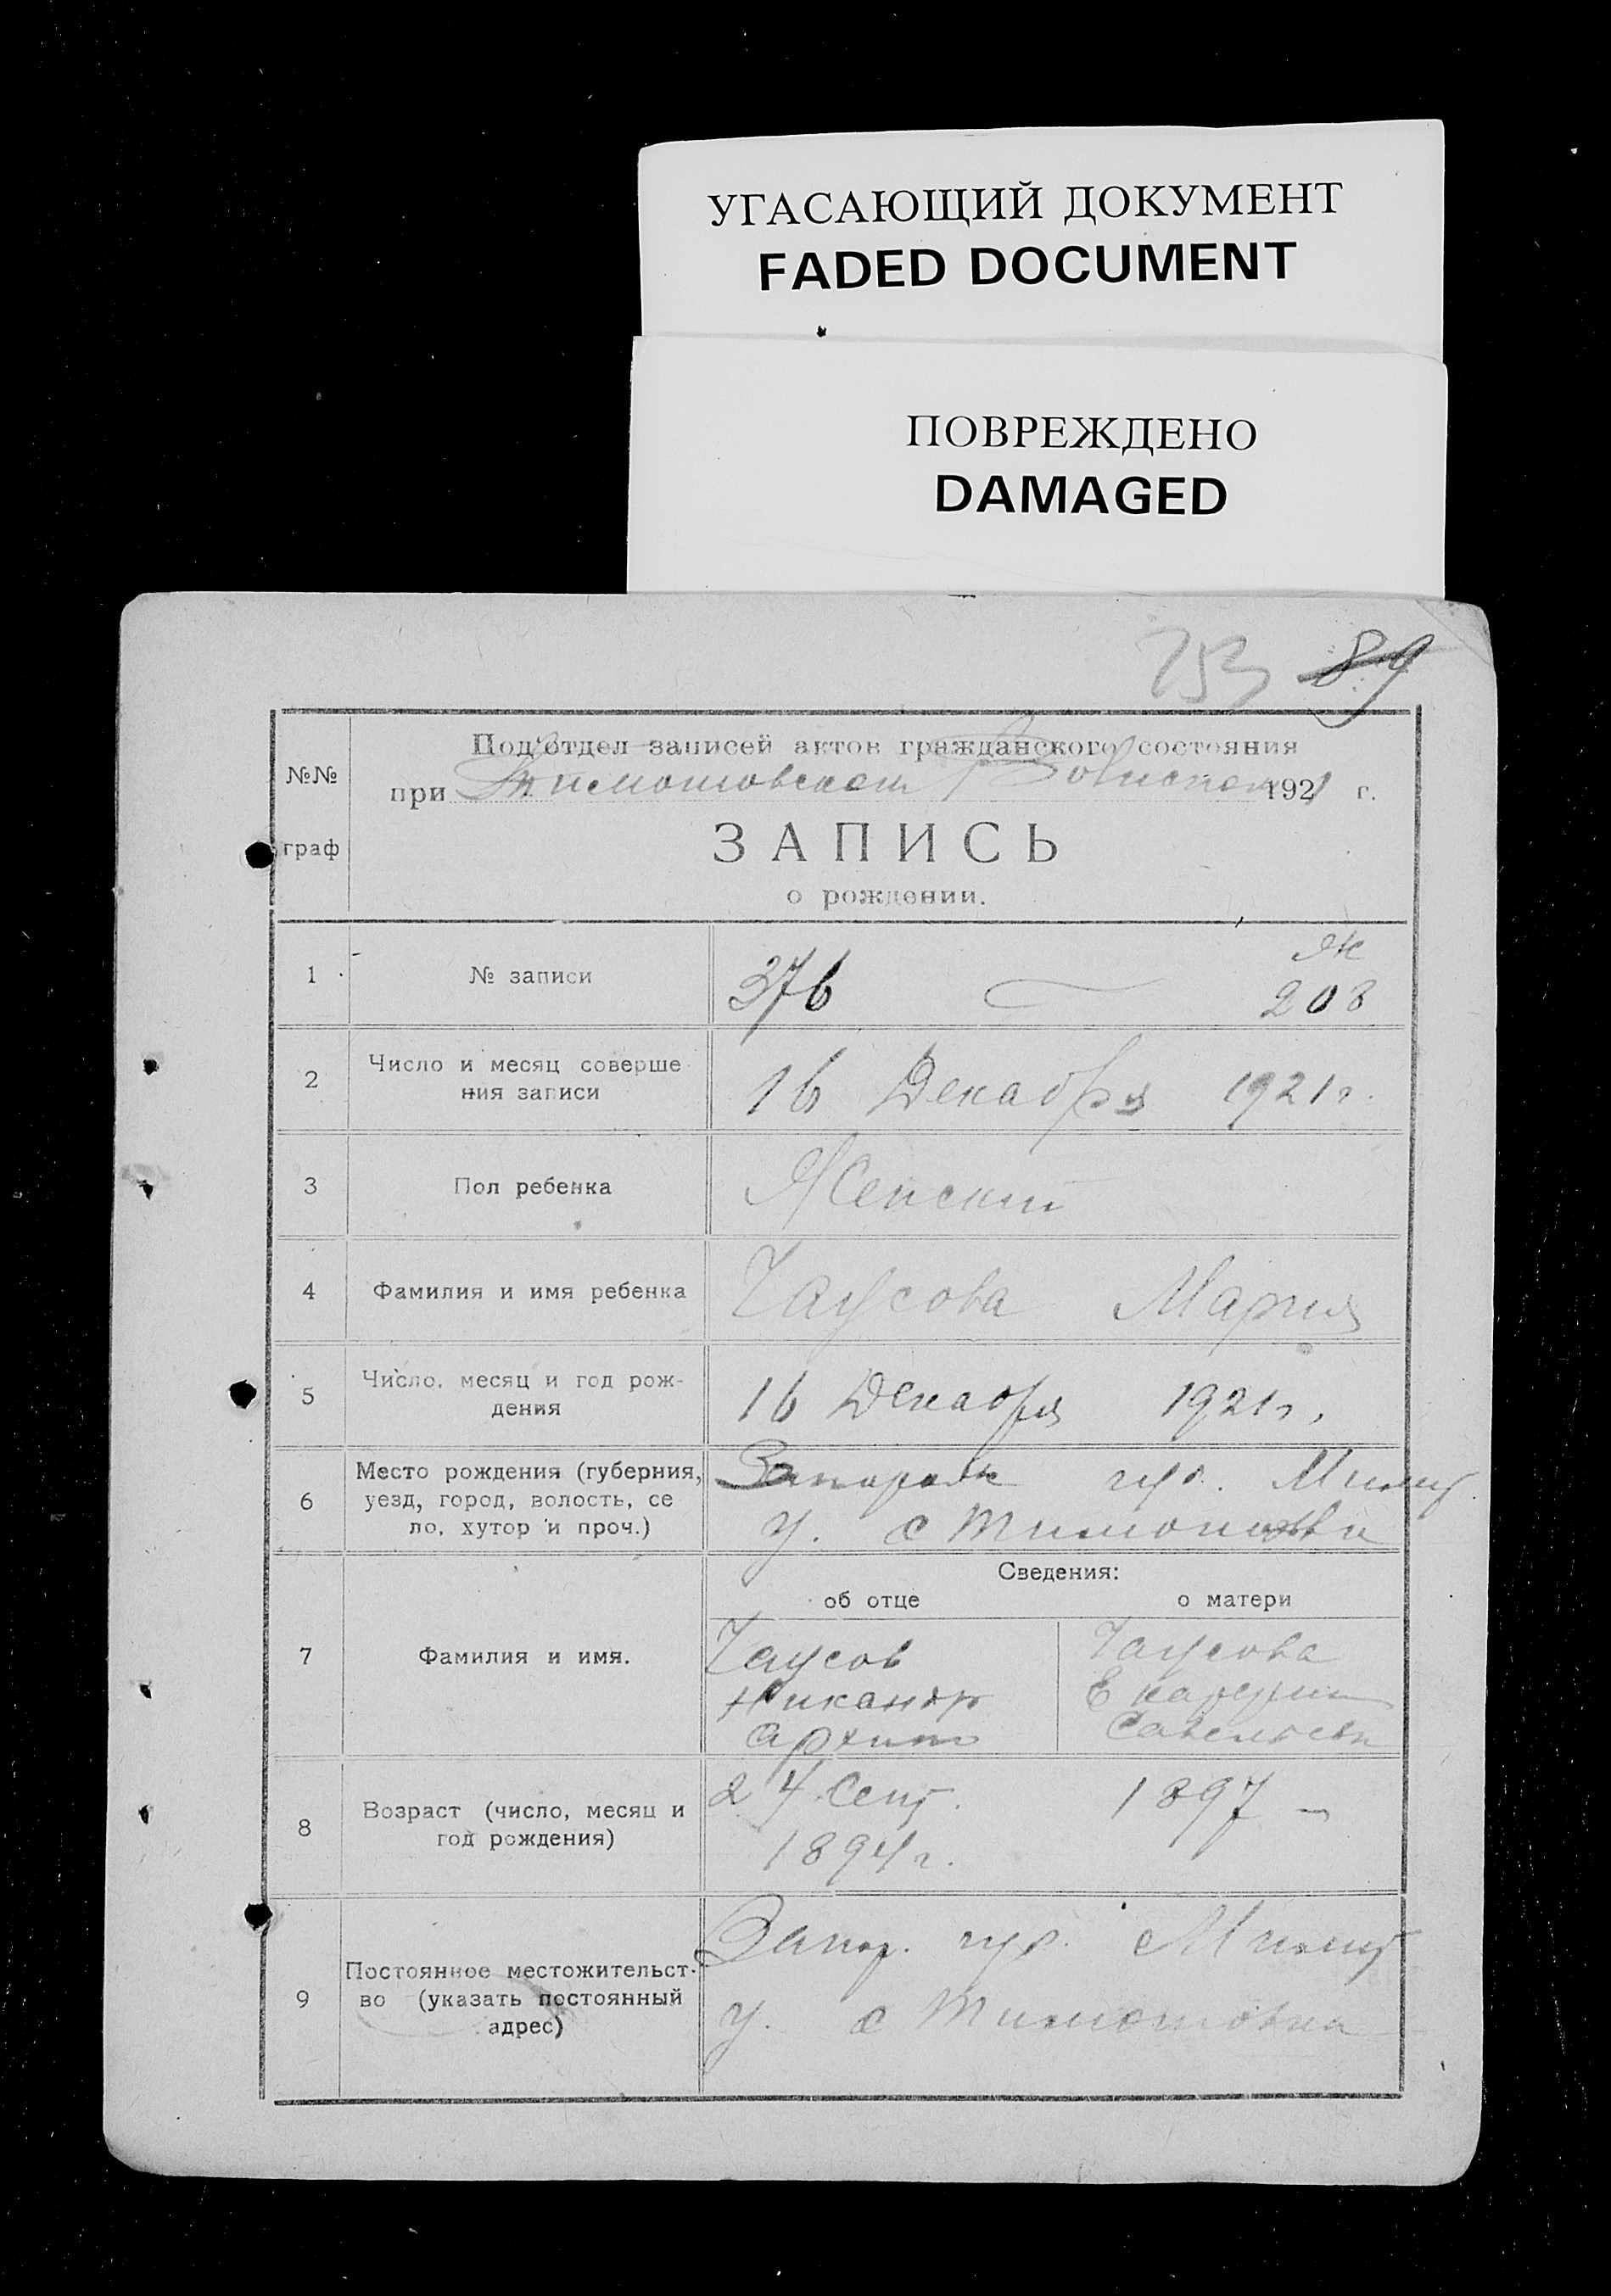 УГАСАЮЩИЙ ДОКУМЕНТ
FADED DOCUMENT
ПОВРЕЖДЕНО
DAMAGED
89
№№
граф
Под'отдел записей актов гражданского состояния
при Тимошовском 1921 г.
ЗАПИСЬ
о рождении.
1
№ записи
376
Ж
208
2
Число и месяц соверше
ния записи
16 Декабря 1921 г.
3
Пол ребенка
Женский
4
Фамилия и имя ребенка
Чаусова Мария
5
Число, месяц и год рож-
дения
16 Декабря 1921 г.
6
Место рождения (губерния,
уезд, город, волость, се
ло, хутор и проч.)
губ.
у. с Тимошовки
7
Фамилия и имя.
Сведения:
об отце
о матери
Чаусов
Никандр
Архип
Чаусова
8
Возраст (число, месяц и
год рождения)
24 Сент.
1894 г.
1897
9
Постоянное местожительст-
во (указать постоянный
адрес)
Запор. губ.
у. с Тимошовка